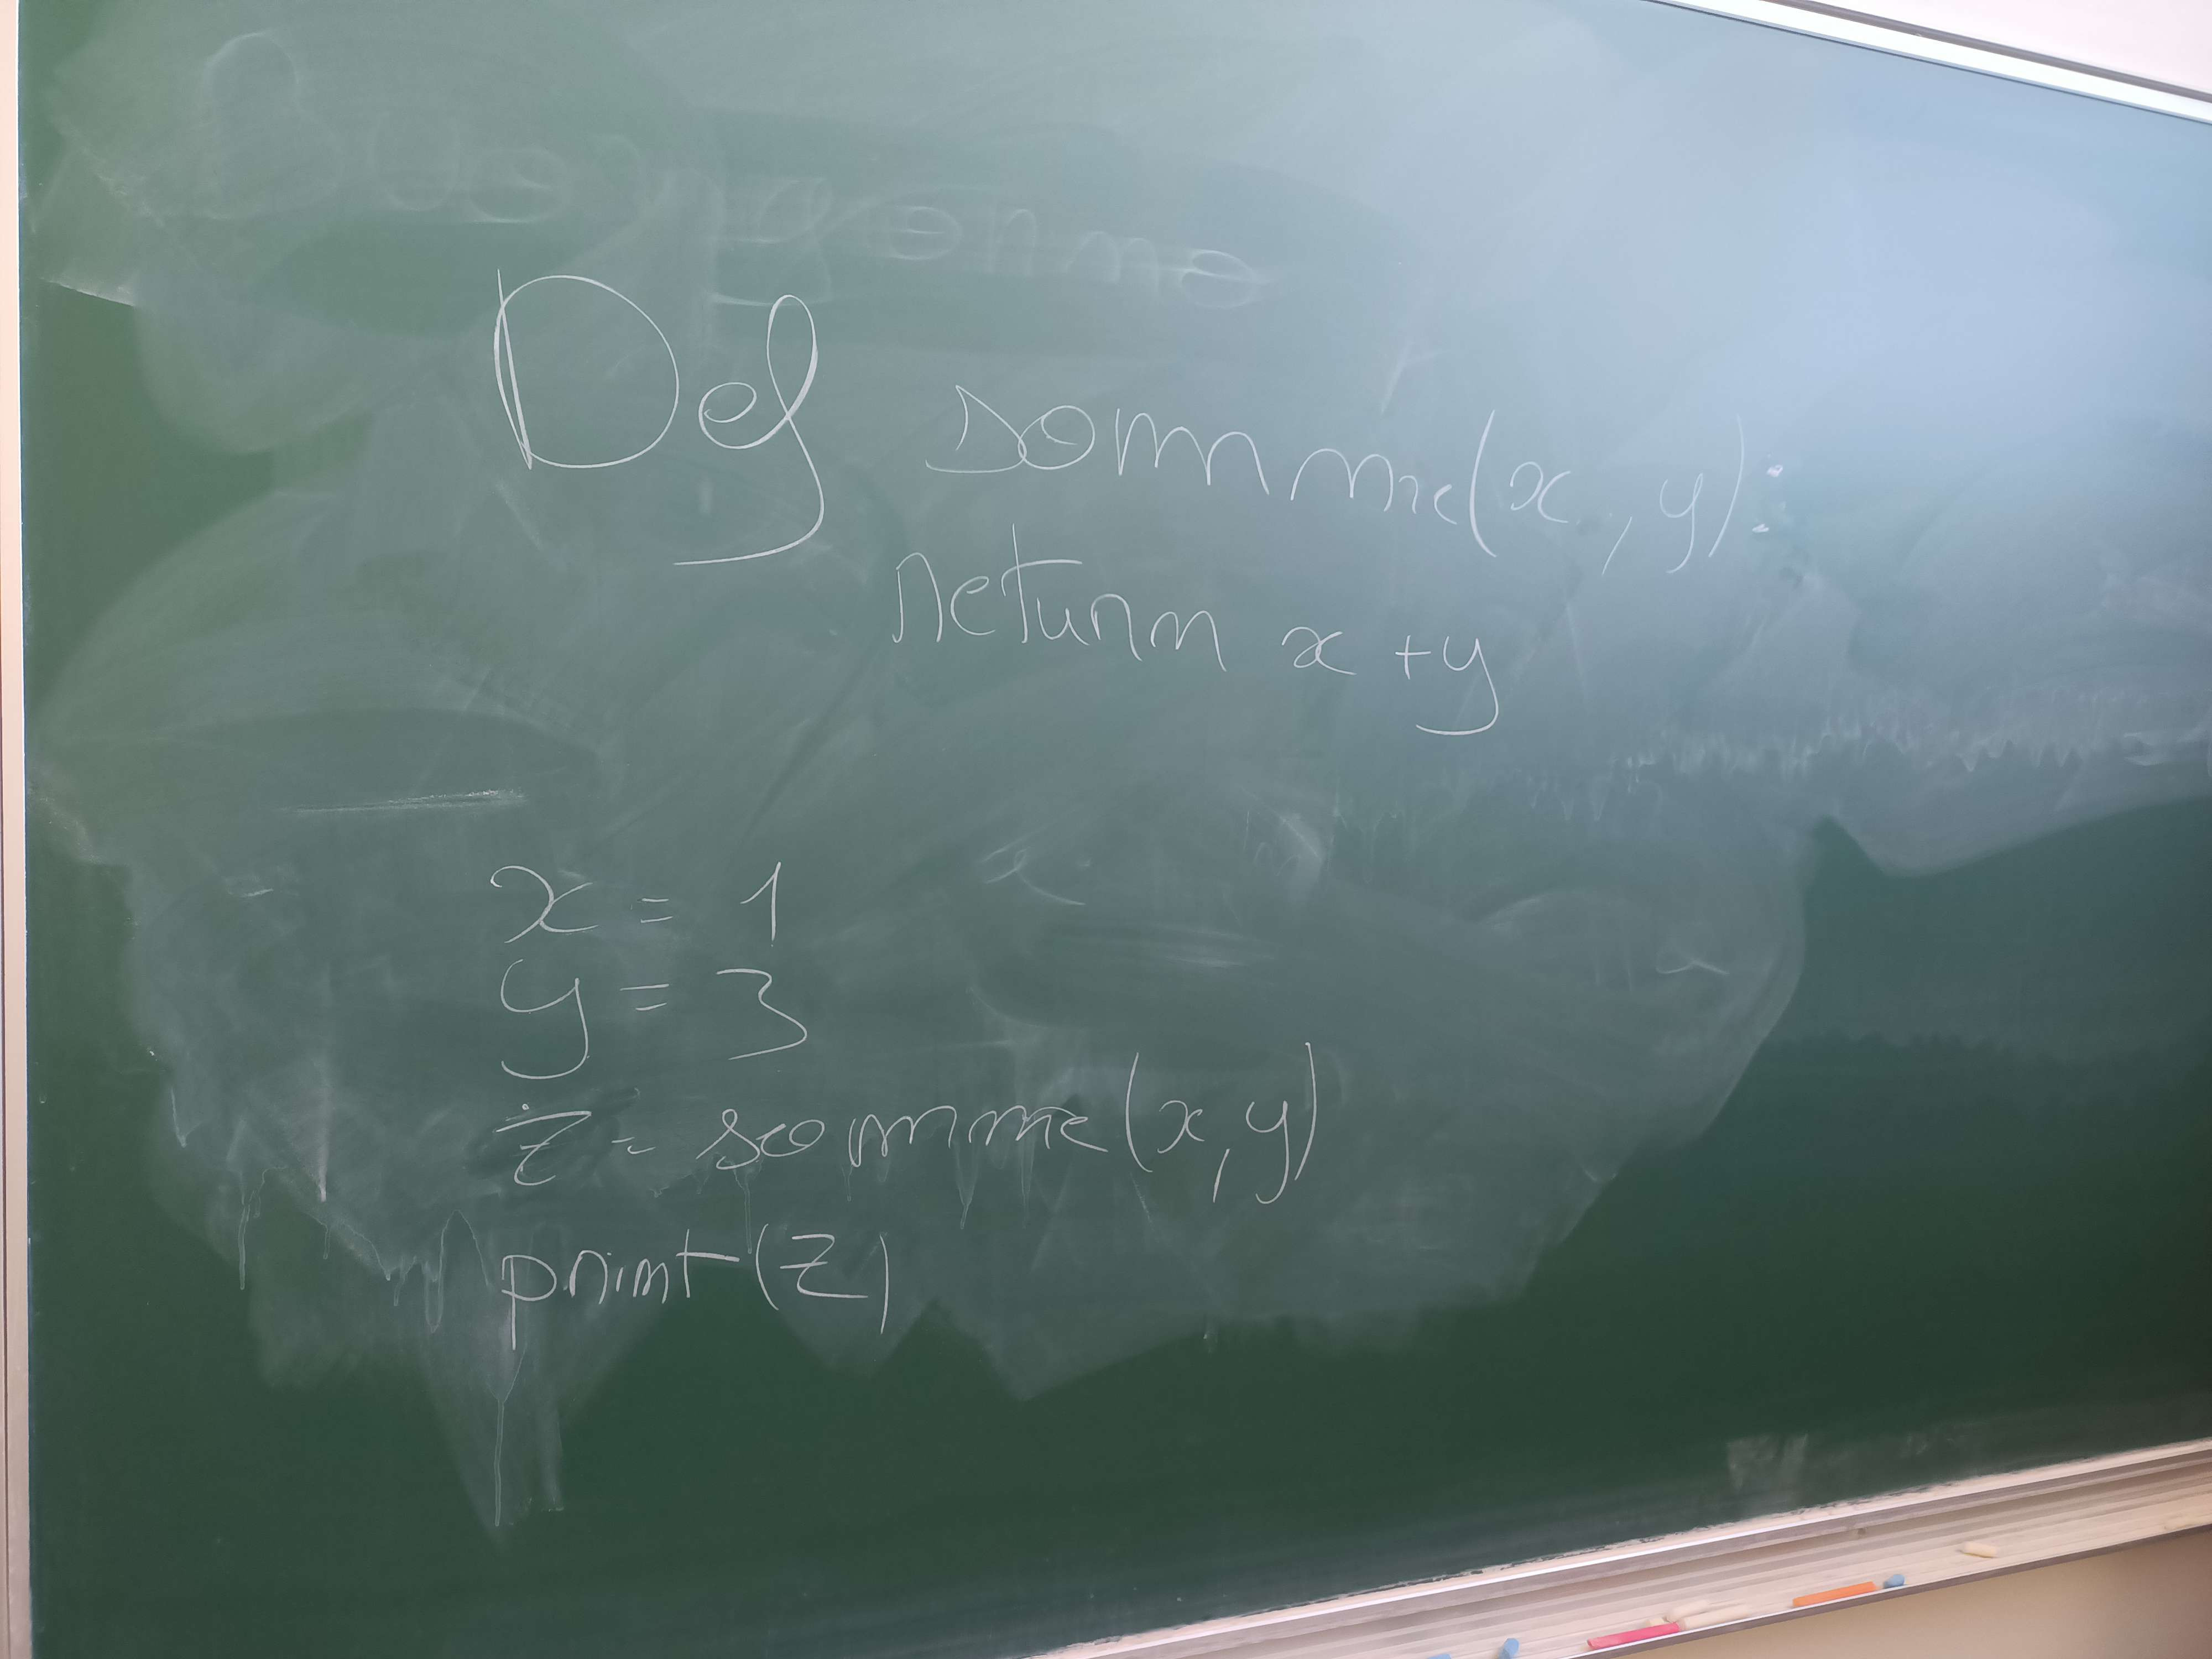 Def somme(x, y):
return x + y
x = 1
y = 3
z = somme(x, y)
print(z)